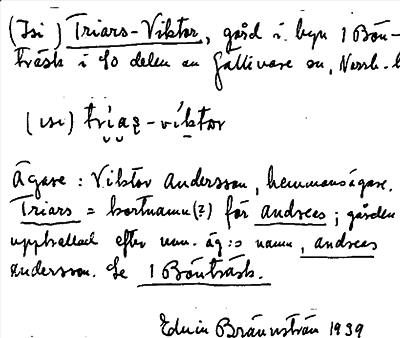 (Isi) Triars-Viktor, gård i byn 1 Bön-
träsk i SO delen av Gällivare sn, Norrb. l
(isi) tríaʂ-víktor
Ägare: Viktor Andersson, hemmansägare.
Triars = kortnamn(?) för Andreas; gården
uppkallad efter nuv. äg:s namn, Andreas
Andersson. Se 1 Bönträsk.
Edvin Brännström 1939